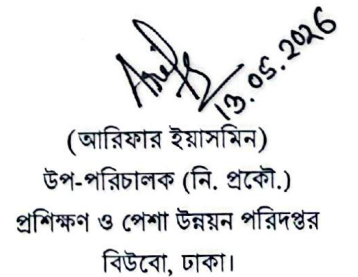 13.05.2026
(আরিফার ইয়াসমিন)
উপ-পরিচালক (নি. প্রকৌ.)
প্রশিক্ষণ ও পেশা উন্নয়ন পরিদপ্তর
বিউবো, ঢাকা।